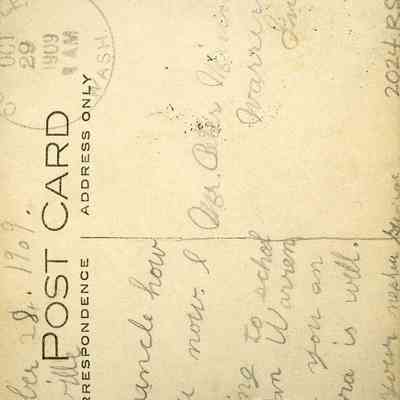 OCT
29
1909
9 AM
WASH.
POST CARD
RRESPONDENCE
ADDRESS ONLY
ber 28. 1909.
ville
uncle how
now. I
ng to schol
n Warren
you an
ra is will.
your nephew George
Mr. Peter
Warren
2024 RS